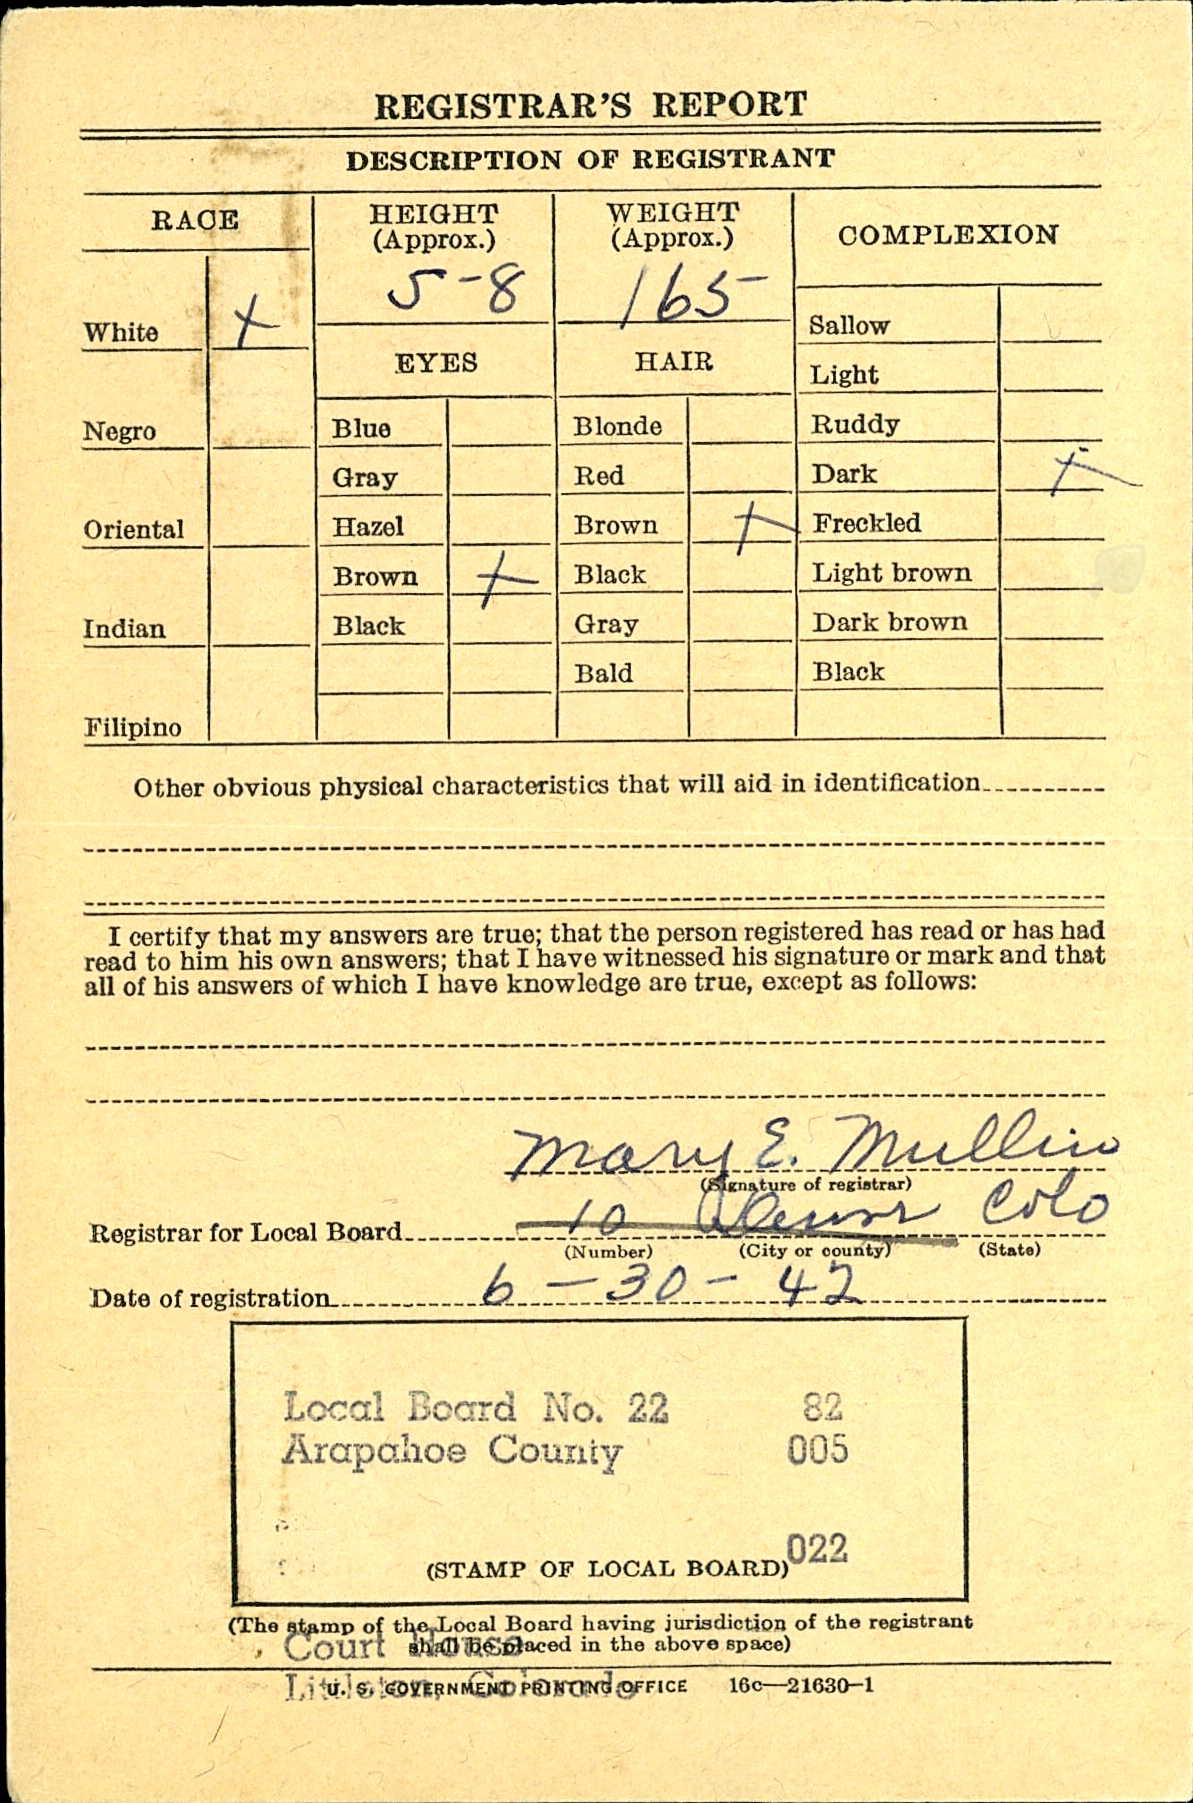 REGISTRAR'S REPORT
DESCRIPTION OF REGISTRANT
RACE
HEIGHT
(Approx.)
5-8
WEIGHT
(Approx.)
165
COMPLEXION
White x
Negro
Oriental
Indian
Filipino
EYES
Blue
Gray
Hazel
Brown x
Black
HAIR
Blonde
Red
Brown x
Black
Gray
Bald
Sallow
Light
Ruddy
Dark x
Freckled
Light brown
Dark brown
Black
Other obvious physical characteristics that will aid in identification
I certify that my answers are true; that the person registered has read or has had
read to him his own answers; that I have witnessed his signature or mark and that
all of his answers of which I have knowledge are true, except as follows:
Mary E. Mullin
(Signature of registrar)
Registrar for Local Board 10 Denver Colo
(Number) (City or county) (State)
Date of registration 6-30-42
Local Board No. 22 82
Arapahoe County 005
022
(STAMP OF LOCAL BOARD)
(The stamp of the Local Board having jurisdiction of the registrant
shall be placed in the above space)
Court House
Littleton, Colorado
U. S. GOVERNMENT PRINTING OFFICE 16c—21630-1